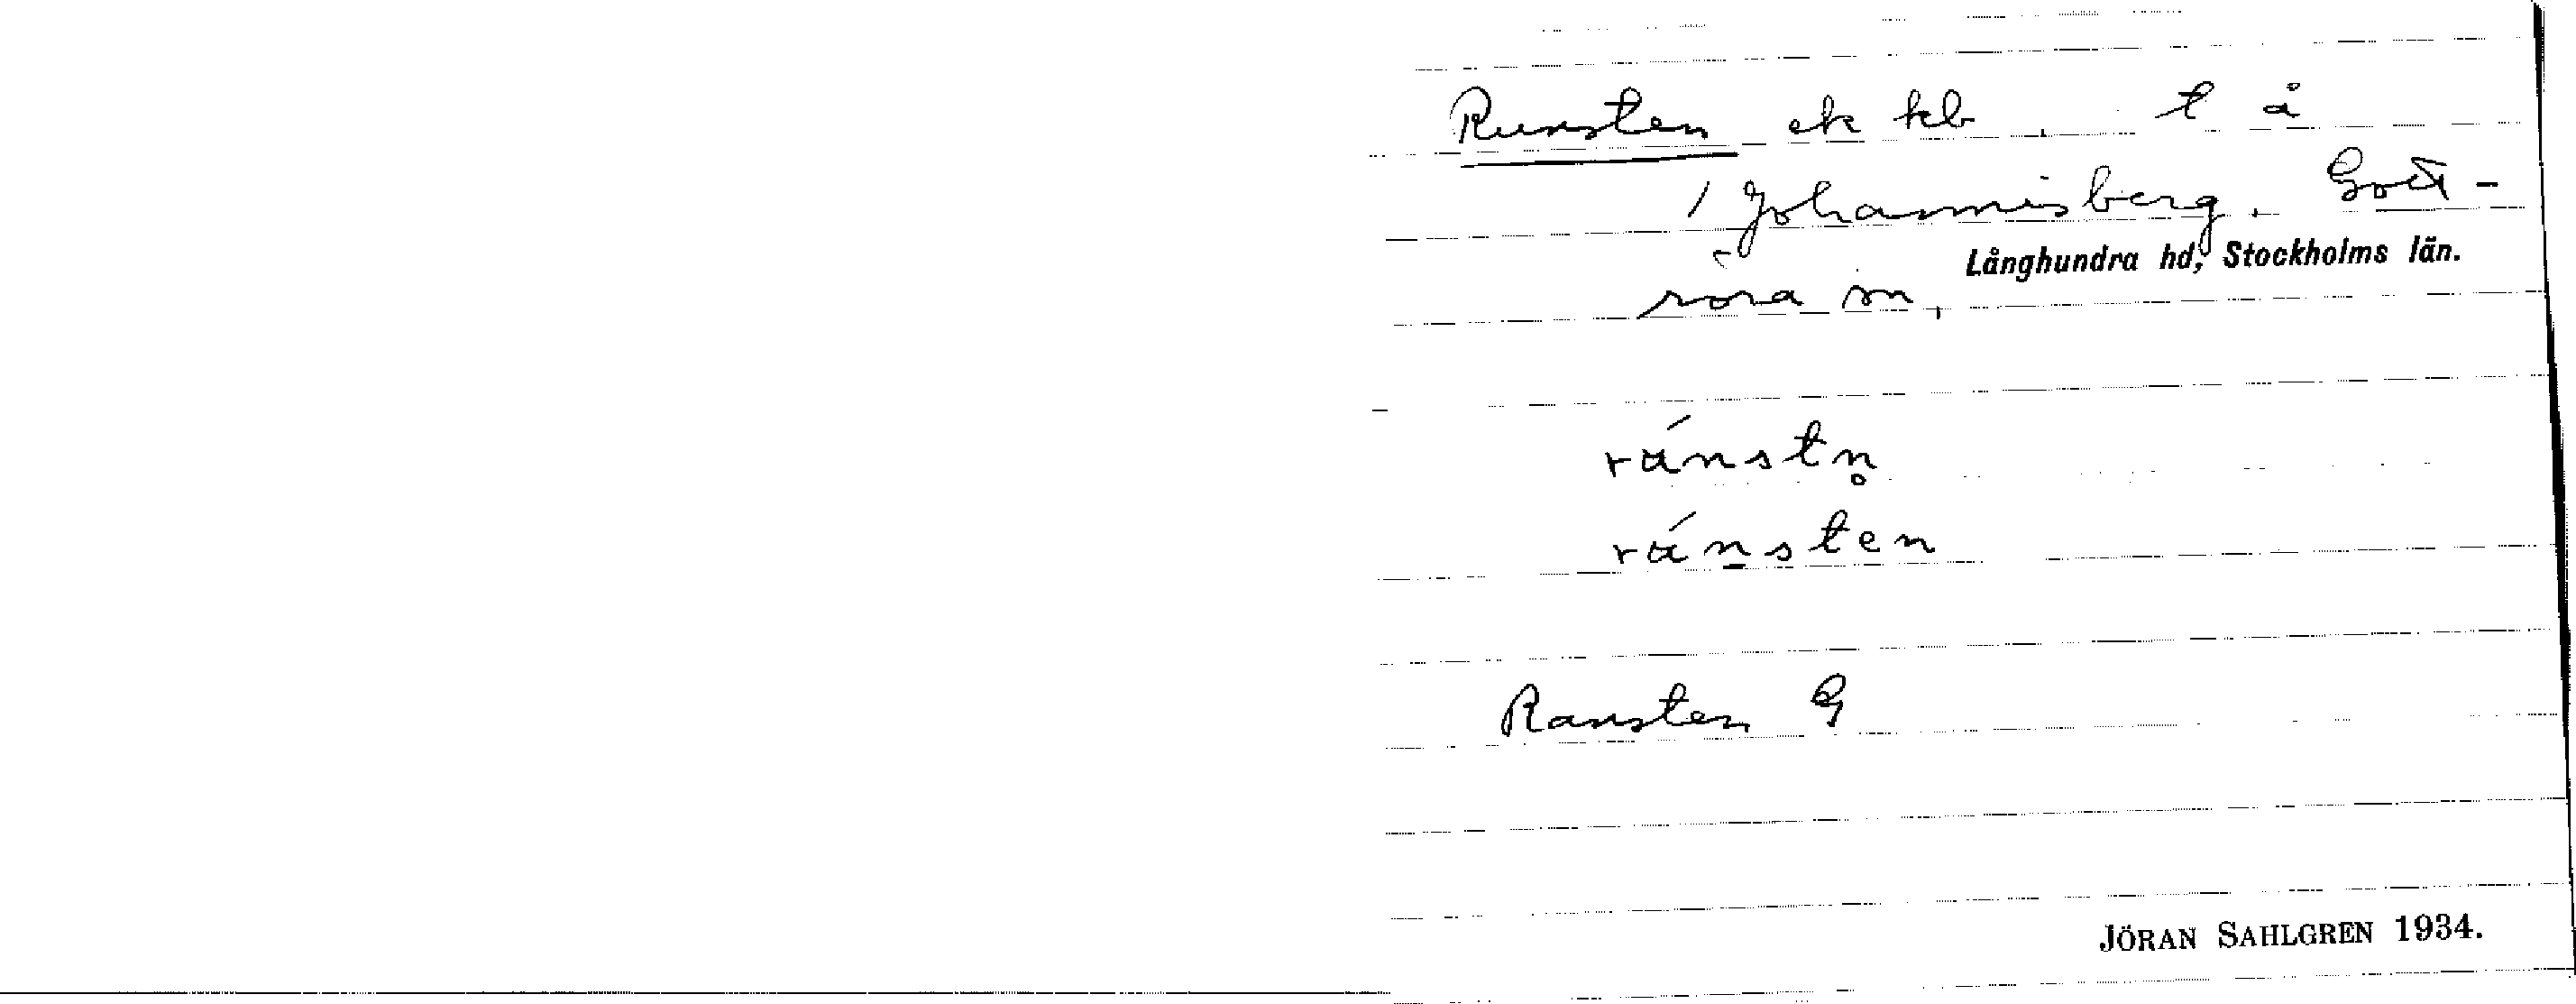 Runsten ek kb. t å
1 Johannisberg. Gott-
Långhundra hd, Stockholms län.
röra sn,
ránstn̥
ránsten
Ransten G
JÖRAN SAHLGREN 1934.